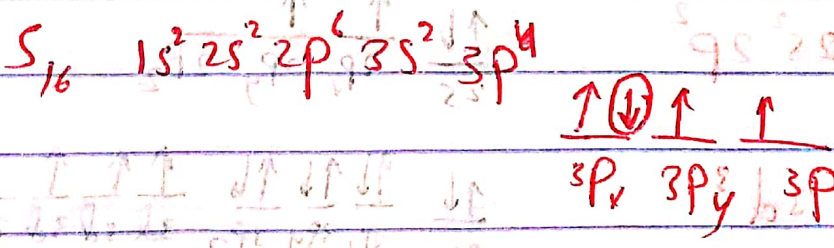 S₁₆ 1s² 2s² 2p⁶ 3s² 3p⁴
↑ ↓ ↑ ↑
3Pₓ 3Py 3P